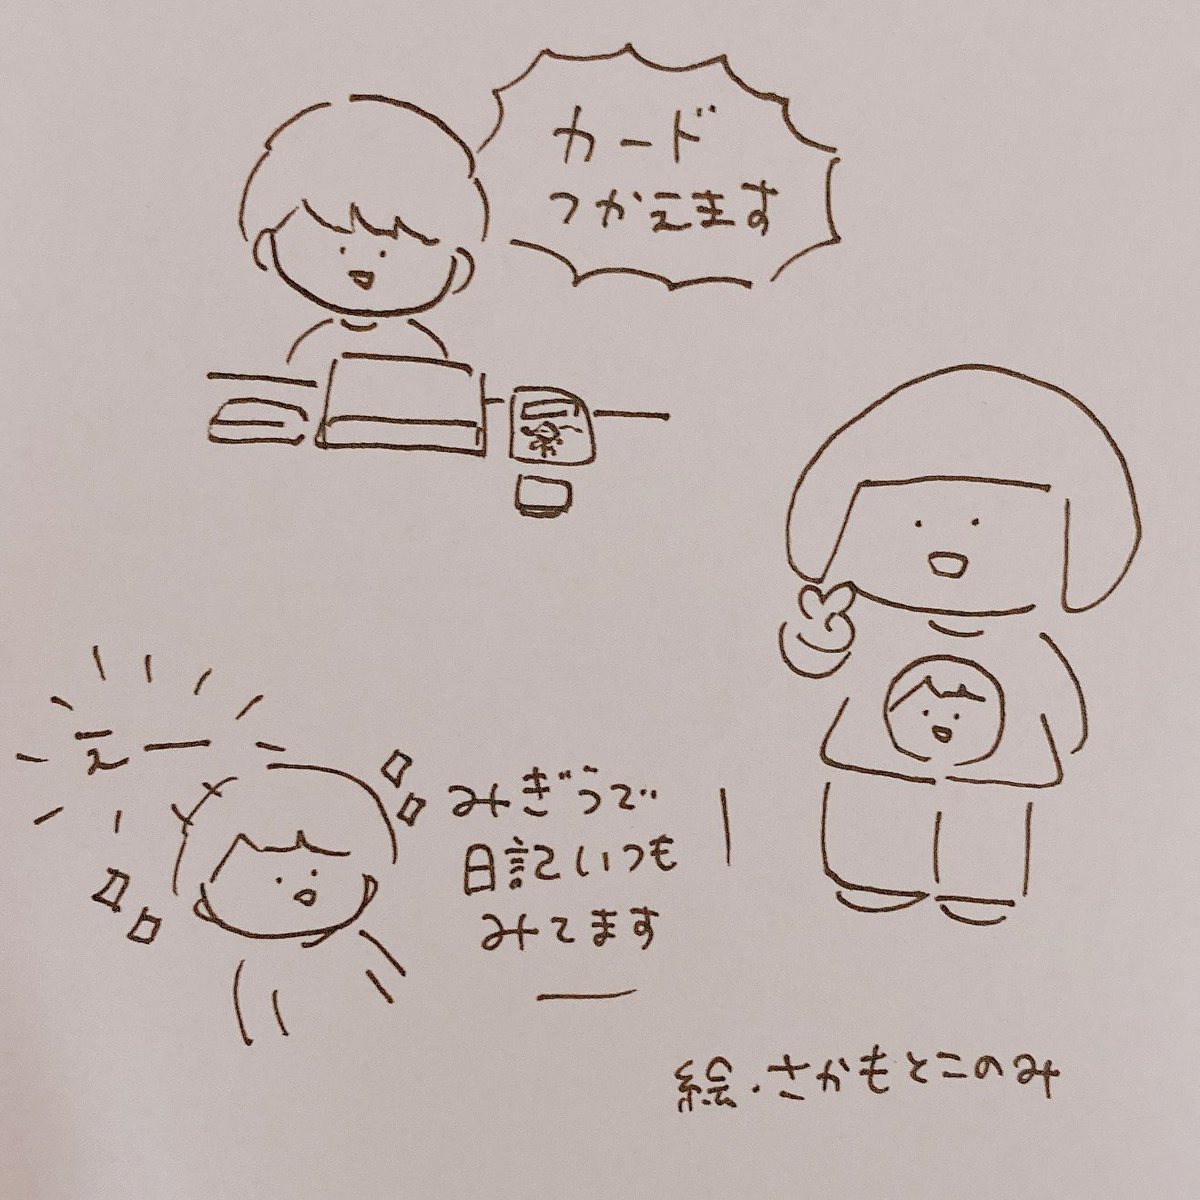 カード
つかえます
えー
みぎうで
日記いつも
みてます
絵・さかもとこのみ